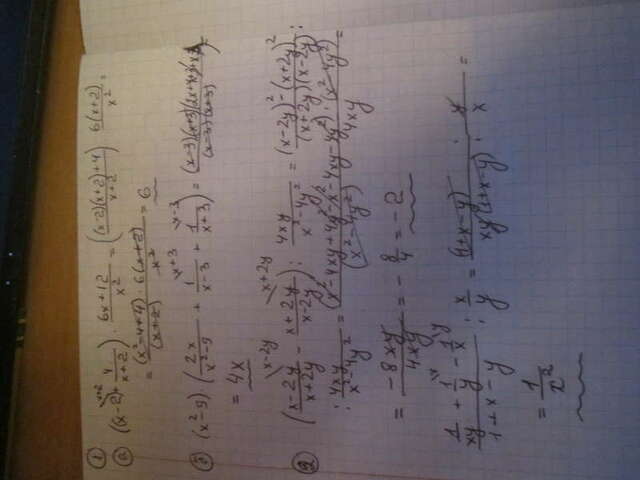 ①
ⓐ ((x-2)^{\x+2} + 4/(x+2)) · (6x+12)/x² = (((x-2)(x+2)+4)/(x+2)) 6(x+2)/x² =
= ((x²-4+4) · 6(x+2))/((x+2) x²) = 6
(x²-9) · (2x/(x²-9) + 1/(x-3)^{\x+3} + 1/(x+3)^{\x-3}) = ((x-3)(x+3)(2x+x+3+x-3))/((x-3)(x+3)) =
= 4x
② ((x-2y)/(x+2y)^{\x-2y} - (x+2y)/(x-2y)^{\x+2y}) : 4xy/(x²-4y²) = ((x-2y)²-(x+2y)²)/((x+2y)(x-2y)) :
: 4xy/(x²-4y²) = ((x²-4xy+4y²-x²-4xy-4y²) · (x²-4y²))/((x²-4y²) 4xy) =
= -8xy/4xy = - 8/4 = -2
(1/xy + 1/y^{\x} - 1/x^{\y})/(1+x-y) : x/y = (1+x-y)/(xy(1+x-y)) : y/x =
= 1/x²